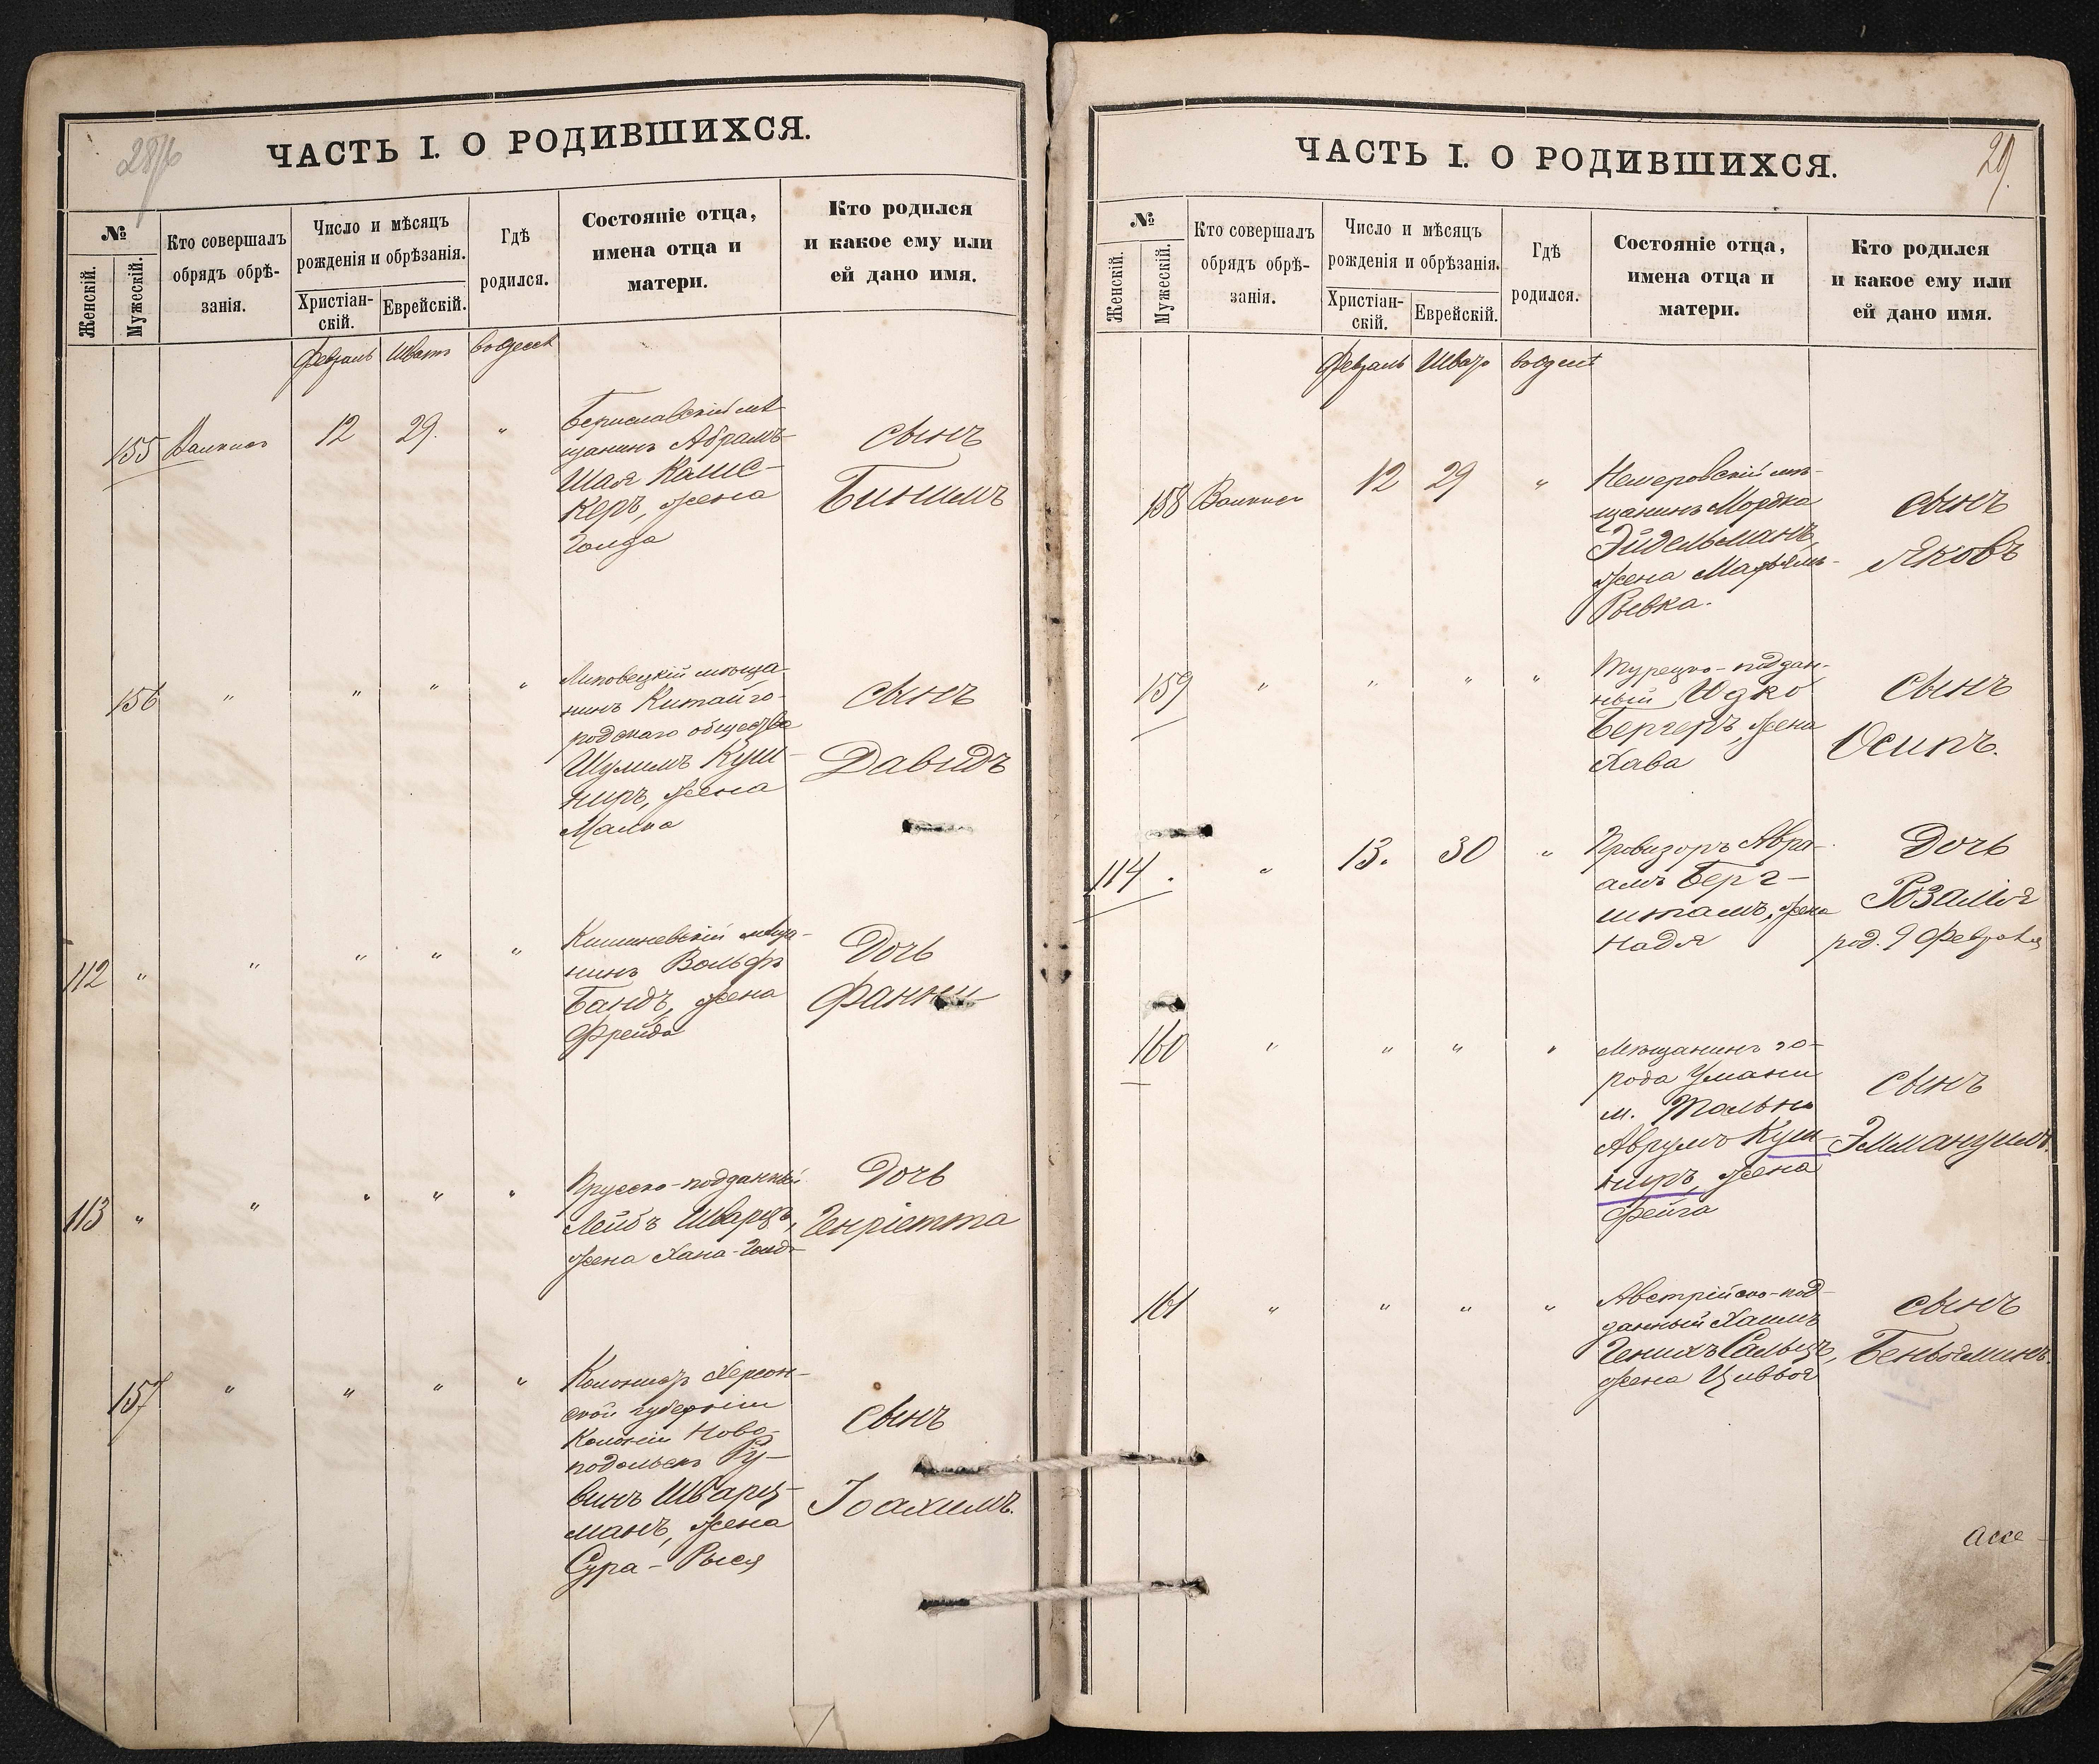 28
ЧАСТЬ I. О РОДИВШИХСЯ.
№
Женскій.
Мужескій.
Кто совершалъ
обрядъ обрѣ-
занія.
Число и мѣсяцъ
рожденія и обрѣзанія.
Христіан-
скій.
Еврейскій.
Гдѣ
родился.
Состояніе отца,
имена отца и
матери.
Кто родился
и какое ему или
ей дано имя.
Февраль Шватъ
155 12 29. "
Бериславскій мѣ-
щанинъ Абрамъ-
Шая
керъ, жена
Голда
сынъ
Бинимъ
156 " " " "
Липовецкій мѣща-
нинъ Китайго-
родскаго общества
Шулимъ Куш-
ниръ, жена
Малка
сынъ
Давидъ
112 " " " " "
Кишиневскій мѣща-
нинъ Вольфъ
Бандъ, жена
Фрейда
Дочь
Фанни
113 " " " " "
Прусско-подданный
Лейбъ Шварцъ,
жена Хана-Голда
Дочь
Генріетта
157 " " " "
Колонистъ Херсон-
ской губерніи
Колоніи Ново-
подольскъ Ру-
винъ Шварц-
манъ, жена
Сура-Рыся
сынъ
Іоахимъ.
29.
ЧАСТЬ I. О РОДИВШИХСЯ.
№
Женскій.
Мужескій.
Кто совершалъ
обрядъ обрѣ-
занія.
Число и мѣсяцъ
рожденія и обрѣзанія.
Христіан-
скій.
Еврейскій.
Гдѣ
родился.
Состояніе отца,
имена отца и
матери.
Кто родился
и какое ему или
ей дано имя.
Февраль Шватъ
158 12 29 "
Немеровскій мѣ-
щанинъ Мордка
Эйдельманъ,
жена Марьямъ-
Рывка.
сынъ
Яковъ
159 " " " "
Турецко-поддан-
ный Юдко
Бергеръ, жена
Хава
сынъ
Осипъ.
114. " 13. 30 "
Провизоръ Авра-
амъ Берг-
штамъ, жена
Надя
Дочь
Розалія
род. 9 Февраля
160 " " " "
Мѣщанинъ го-
рода Умани
м. Тально
Аврумъ Куш-
ниръ, жена
Фейга
сынъ
Эммануилъ.
161 " " " "
Австрійско-под-
данный Хаимъ
Генихъ Сальцъ,
жена Цивья
сынъ
Беньяминъ.